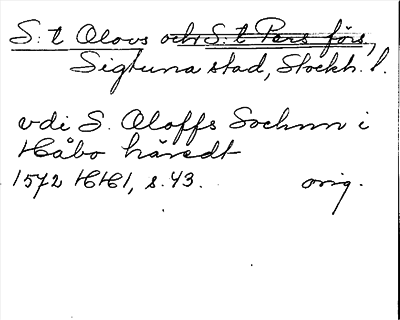 S:t Olovs och S:t Pers förs,
Sigtuna stad, Stockh. l.
vdi S. Oloffs Sochnn i
Håbo häredt
1572 HH1, s. 43. orig.